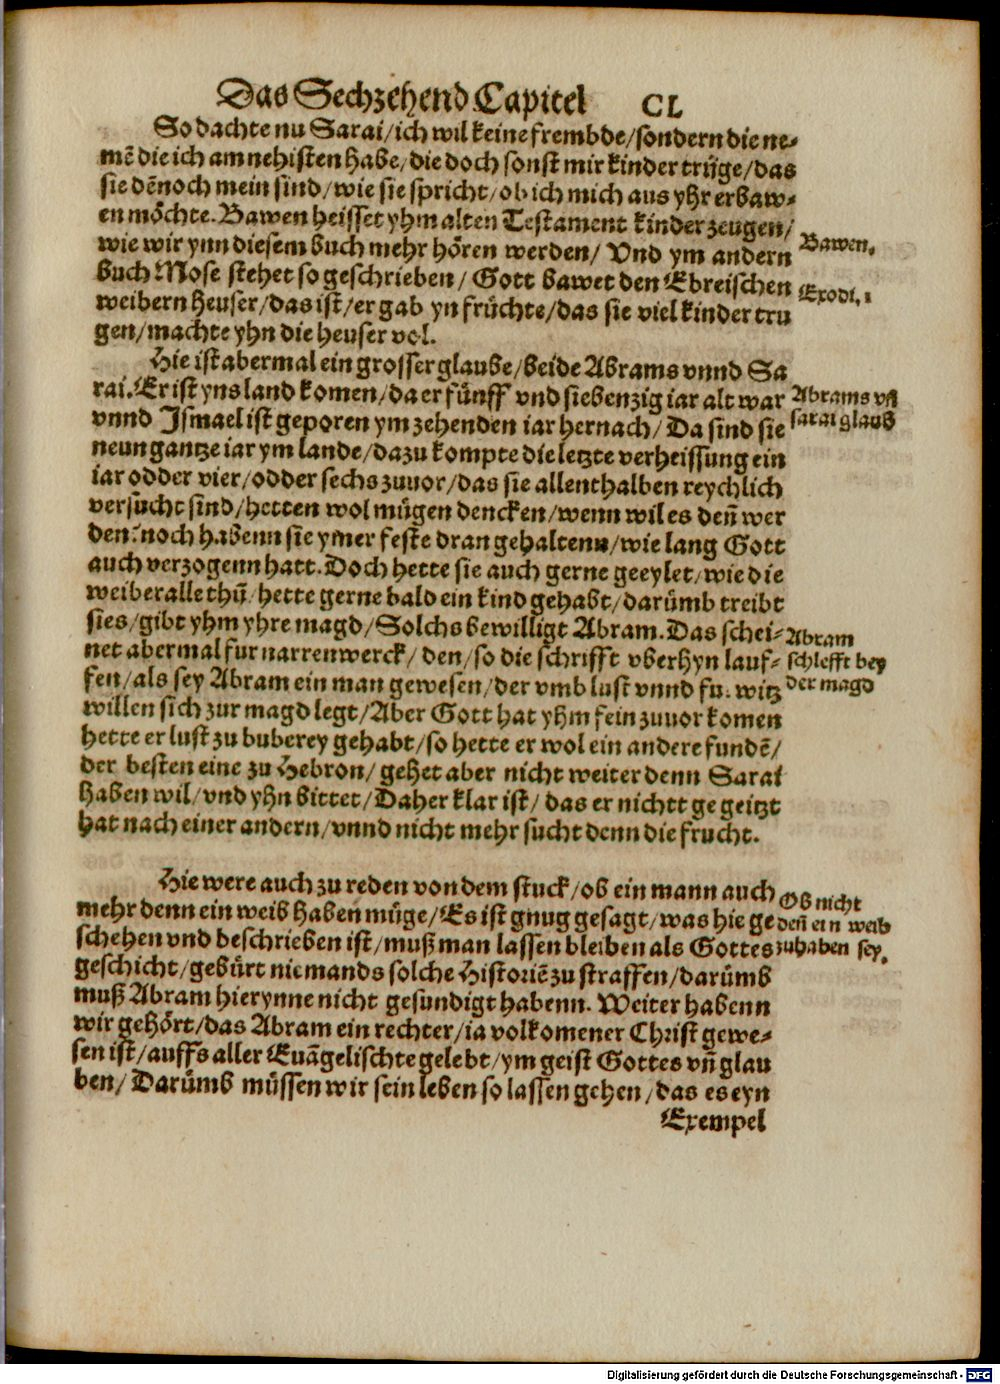 Das Sechzehend Capitel CL
So dachte nu Sarai/ich wil keine frembde/sondern die ne-
mē die ich am nehisten habe/die doch sonst mir kinder trüge/das
sie dēnoch mein sind/wie sie spricht/ob ich mich aus yhr erbaw-
en möchte. Bawen heisset ym alten Testament kinder zeugen/
wie wir ynn diesem buch mehr hören werden/ Vnd ym andern
buch Mose stehet so geschrieben/ Gott bawet den Ebreischen
weibern heuser/das ist/er gab yn früchte/das sie viel kinder tru
gen/machte yhn die heuser vol.
Bawen.
Exodi. 1
Hie ist abermal ein grosser glaube/beide Abrams vnnd Sa
rai. Er ist yns land komen/da er fünff vnd siebenzig iar alt war
vnnd Ismael ist geporen ym zehenden iar hernach/ Da sind sie
neun gantze iar ym lande/dazu kompte die letzte verheissung ein
iar odder vier/odder sechs zuuor/das sie allenthalben reychlich
versücht sind/hetten wol mügen dencken/wenn wil es deñ wer
den? noch habenn sie ymer feste dran gehaltenn/wie lang Gott
auch verzogenn hatt. Doch hette sie auch gerne geeylet/wie die
weiber alle thū/hette gerne bald ein kind gehabt/darümb treibt
sies/gibt yhm yhre magd/Solchs bewilligt Abram. Das schei-
net abermal fur narrenwerck/den/so die schrifft vberhyn lauf-
fen/als sey Abram ein man gewesen/der vmb lust vnnd fu. witz
willen sich zur magd legt/Aber Gott hat yhm fein zuuor komen
hette er lust zu buberey gehabt/so hette er wol ein andere fundē/
der besten eine zu Hebron/gehet aber nicht weiter denn Sarai
haben wil/vnd yhn bittet/Daher klar ist/ das er nichtt gegeitzt
hat nach einer andern/vnnd nicht mehr sucht denn die frucht.
Abrams vñ
sarai glaub
Abram
schlefft bey
der magd
Hie were auch zu reden von dem stuck/ob ein mann auch
mehr denn ein weib haben müge/Es ist gnug gesagt/was hie ge
schehen vnd beschrieben ist/muß man lassen bleiben als Gottes
geschicht/gebürt niemands solche Historiē zu straffen/darümb
muß Abram hierynne nicht gesundigt habenn. Weiter habenn
wir gehört/das Abram ein rechter/ia volkomener Christ gewe-
sen ist/auffs aller Euāgelischte gelebt/ym geist Gottes vñ glau
ben/ Darümb müssen wir sein leben so lassen gehen/das es eyn
Exempel
Ob nicht
deñ ein weib
zuhaben sey.
Digitalisierung gefördert durch die Deutsche Forschungsgemeinschaft - DFG